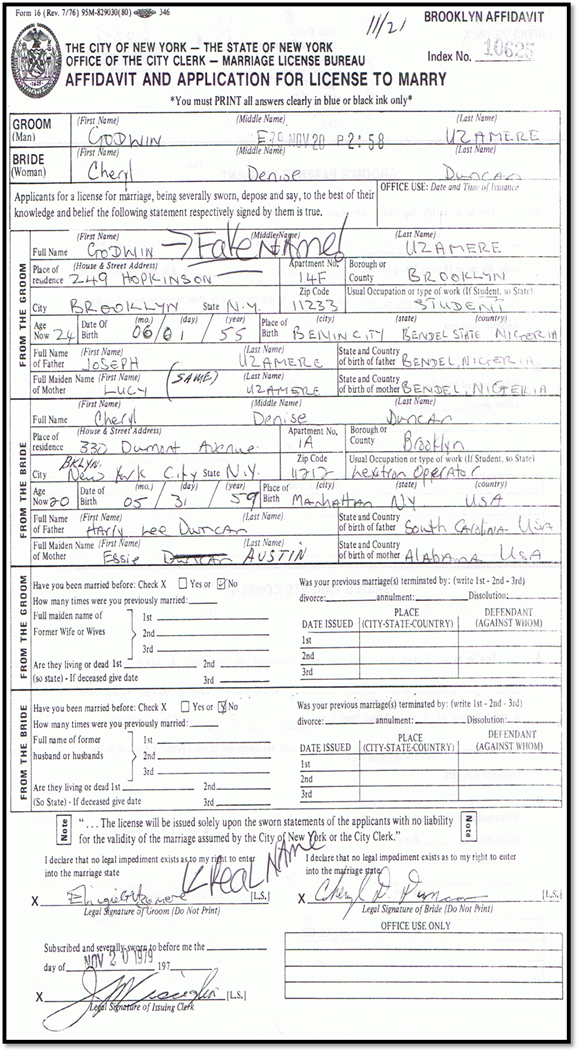 Form 16 (Rev. 7/76) 95M-829030(80) 346
11/21
BROOKLYN AFFIDAVIT
THE CITY OF NEW YORK — THE STATE OF NEW YORK
OFFICE OF THE CITY CLERK - MARRIAGE LICENSE BUREAU
Index No. 10625
AFFIDAVIT AND APPLICATION FOR LICENSE TO MARRY
*You must PRINT all answers clearly in blue or black ink only*
GROOM (First Name) (Middle Name) (Last Name)
(Man) GODWIN E 79 NOV 20 P2:58 UZAMERE
BRIDE (First Name) (Middle Name) (Last Name)
(Woman) Cheryl Denise Duncan
Applicants for a license for marriage, being severally sworn, depose and say, to the best of their
knowledge and belief the following statement respectively signed by them is true.
OFFICE USE: Date and Time of Issuance
FROM THE GROOM
(First Name) (Middle Name) (Last Name)
Full Name GODWIN → Fake NAME! UZAMERE
Place of residence (House & Street Address) 249 HOPKINSON Apartment No. 14F Borough or County BROOKLYN
City BROOKLYN State N.Y. Zip Code 11233 Usual Occupation or type of work (If Student, so State) STUDENT
Age Now 24 Date Of Birth (mo.) 06 / (day) 01 / (year) 55 Place of Birth (city) BENIN CITY (state) BENDEL STATE (country) NIGERIA
Full Name of Father (First Name) JOSEPH (Last Name) UZAMERE State and Country of birth of father BENDEL, NIGERIA
Full Maiden Name of Mother (First Name) LUCY (SAME) (Last Name) UZAMERE State and Country of birth of mother BENDEL, NIGERIA
FROM THE BRIDE
(First Name) (Middle Name) (Last Name)
Full Name Cheryl Denise Duncan
Place of residence (House & Street Address) 330 Dumont Avenue Apartment No. 1A Borough or County Brooklyn
City BKLYN. New York City State N.Y. Zip Code 11212 Usual Occupation or type of work (If Student, so State) Lextron Operator
Age Now 20 Date of Birth (mo.) 05 / (day) 31 / (year) 59 Place of Birth (city) Manhattan (state) NY (country) USA
Full Name of Father (First Name) Harry Lee Duncan (Last Name) State and Country of birth of father South Carolina USA
Full Maiden Name of Mother (First Name) Essie Duncan AUSTIN (Last Name) State and Country of birth of mother Alabama USA
FROM THE GROOM
Have you been married before: Check X Yes or No
How many times were you previously married:
Full maiden name of
Former Wife or Wives
1st
2nd
3rd
Are they living or dead 1st 2nd
(so state) - If deceased give date 3rd
Was your previous marriage(s) terminated by: (write 1st - 2nd - 3rd)
divorce: annulment: Dissolution:
DATE ISSUED PLACE (CITY-STATE-COUNTRY) DEFENDANT (AGAINST WHOM)
1st
2nd
3rd
FROM THE BRIDE
Have you been married before: Check X Yes or No
How many times were you previously married:
Full name of former
husband or husbands
1st
2nd
3rd
Are they living or dead 1st 2nd
(So State) - If deceased give date 3rd
Was your previous marriage(s) terminated by: (write 1st - 2nd - 3rd)
divorce: annulment: Dissolution:
DATE ISSUED PLACE (CITY-STATE-COUNTRY) DEFENDANT (AGAINST WHOM)
1st
2nd
3rd
Note "... The license will be issued solely upon the sworn statements of the applicants with no liability Note
for the validity of the marriage assumed by the City of New York or the City Clerk."
I declare that no legal impediment exists as to my right to enter
into the marriage state
REAL NAME
X [L.S.]
Legal Signature of Groom (Do Not Print)
I declare that no legal impediment exists as to my right to enter
into the marriage state
X Cheryl D. Duncan [L.S.]
Legal Signature of Bride (Do Not Print)
Subscribed and severally sworn to before me the
NOV 20 1979
day of 197
X [L.S.]
Legal Signature of Issuing Clerk
OFFICE USE ONLY